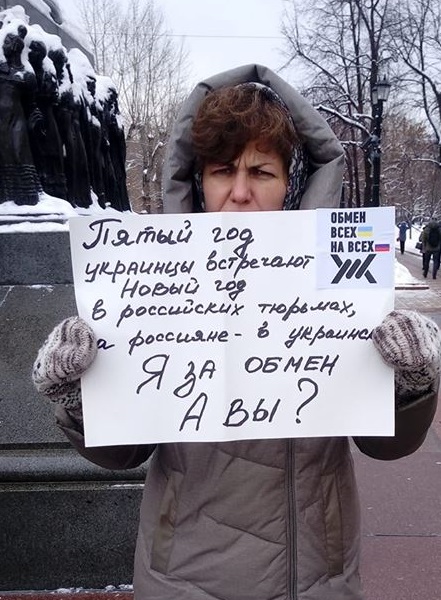 Пятый год
украинцы встречают
Новый год
в российских тюрьмах,
а россияне - в украинск
Я ЗА ОБМЕН
А ВЫ?
ОБМЕН
ВСЕХ
НА ВСЕХ